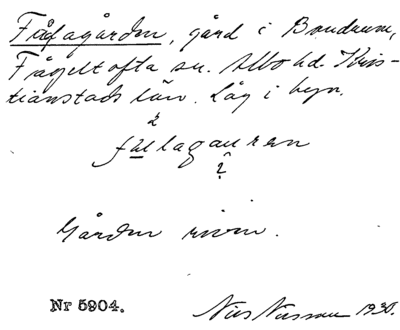 Fågagården, gård i Bondrum,
Fågeltofta sn. Albo hd. Kris-
tianstads län. Låg i byn.
Gården riven.
Nr 5904.
Nils Nilsson 1930.